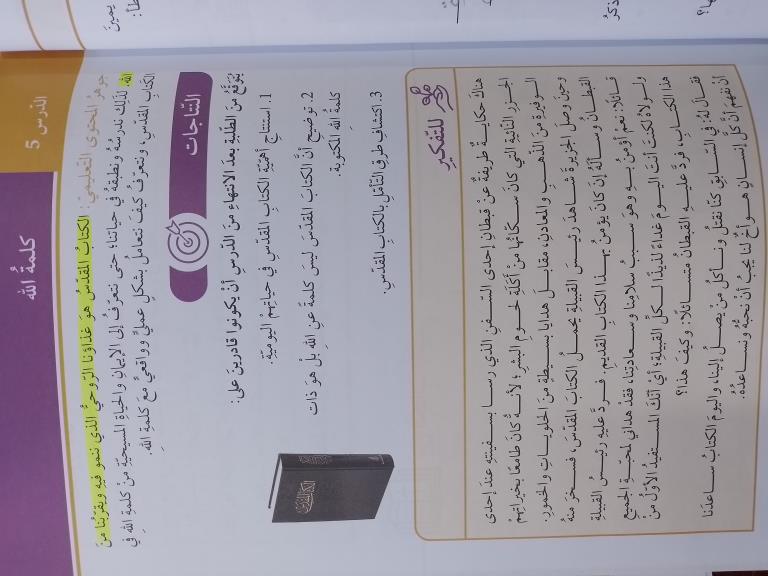 الدرس 5
كلمةُ الله
جوهرُ المحتوى التعليمي: الكتابُ المقدّس هو غذاؤنا الرّوحيُّ الذي ننمو فيه ويقرّبنا من
الله. لذلك ندرسُهُ ونطبّقهُ في حياتنا؛ حتى نتعرّفَ إلى الإيمانِ والحياةِ المسيحيّةِ منْ كلمةِ الله في
الكتابِ المقدّسِ، ونتعرّفَ كيفَ نتعاملُ بشكلٍ عمليٍّ وواقعيٍّ معَ كلمةِ اللهِ.
النّتاجات
يُتوقّعُ منَ الطّلبةِ بعدَ الانتهاءِ منَ الدّرسِ أنْ يكونوا قادرينَ على:
1. استنتاجِ أهمّيّةِ الكتابِ المقدّسِ في حياتِهمْ اليوميّةِ.
2. توضيحِ أنَّ الكتابَ المقدّسَ ليسَ كلمةً عنِ اللهِ بلْ هوَ ذاتُ
كلمةُ اللهِ المكتوبةِ.
3. اكتشافِ طرقِ التأمّلِ بالكتابِ المقدّسِ.
الكتاب المقدس
للتفكيرِ
هناكَ حكايةٌ طريفةٌ عنْ قبطانِ إحدى السّفنِ الذي رسا بسفينتهِ عندَ إحدى
الجزرِ النّائيةِ التي كانَ سكّانُها منْ أكَلَةِ لحومِ البشرِ؛ لأنّهُ كانَ طامعًا بخيراتِهمْ
الوفيرةِ منَ الذّهبِ والمعادنِ، مقابلَ هدايا بسيطةٍ منَ الحلوياتِ والخمورِ.
وحينَ وصلَ الجزيرةَ شاهدَ رئيسَ القبيلةِ يحملُ الكتابَ المقدّسَ، فسخرَ منهُ
القبطانُ وسألَهُ إنْ كانَ يؤمنُ بهذا الكتابِ القديمِ. فردَّ عليهِ رئيسُ القبيلةِ
قائلًا: نعمْ أؤمنُ بهِ وهوَ سببُ سلامِنا وسعادتِنا، فقدْ هداني لمحبّةِ الجميعِ
ولولاهُ لكنتَ أنتَ اليومَ غداءً لذيذًا لكلِّ القبيلةِ؛ أي أنّكَ المستفيدُ الأوّلُ منْ
هذا الكتابِ، فردَّ عليهِ القبطانُ متسائلًا: وكيفَ هذا؟
فقالَ لهُ: في السّابقِ كنّا نقتلُ ونأكلُ منْ يصلُ إلينا، واليومَ الكتابُ ساعدَنا
أنْ نفهمَ أنَّ كلَّ إنسانٍ هوَ أخٌ لنا يجبُ أنْ نحبَّهُ ونساعدَهُ.